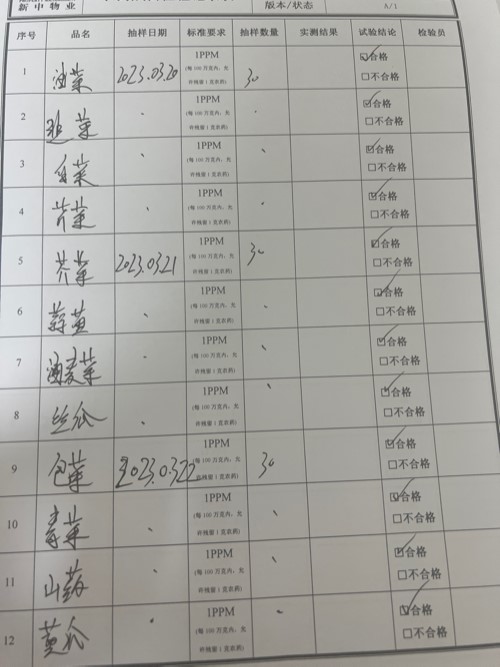 新中物业 版本/状态 A/1
序号 品名 抽样日期 标准要求 抽样数量 实测结果 试验结论 检验员
1 油菜 2023.03.20 1PPM 30 ☑合格
(每100万克内，允许残留1克农药) □不合格
2 韭菜 、 1PPM 、 ☑合格
(每100万克内，允许残留1克农药) □不合格
3 白菜 、 1PPM 、 ☑合格
(每100万克内，允许残留1克农药) □不合格
4 芹菜 、 1PPM 、 ☑合格
(每100万克内，允许残留1克农药) □不合格
5 芥菜 2023.03.21 1PPM 30 ☑合格
(每100万克内，允许残留1克农药) □不合格
6 蒜苗 、 1PPM 、 ☑合格
(每100万克内，允许残留1克农药) □不合格
7 油麦菜 、 1PPM 、 ☑合格
(每100万克内，允许残留1克农药) □不合格
8 丝瓜 、 1PPM 、 ☑合格
(每100万克内，允许残留1克农药) □不合格
9 包菜 2023.03.22 1PPM 30 ☑合格
(每100万克内，允许残留1克农药) □不合格
10 青菜 、 1PPM 、 ☑合格
(每100万克内，允许残留1克农药) □不合格
11 山药 、 1PPM 、 ☑合格
(每100万克内，允许残留1克农药) □不合格
12 黄瓜 、 1PPM 、 ☑合格
(每100万克内，允许残留1克农药) □不合格